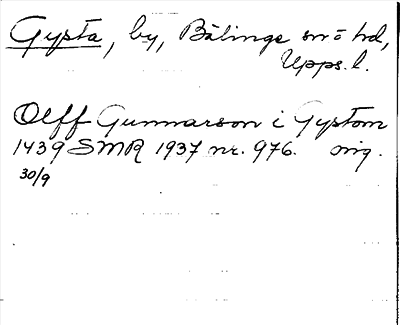 Gysta, by, Bälinge sn o hd,
Upps. l.
Olff Gunnarson i Gystom
1439 SMR 1937 nr. 976. orig.
30/9